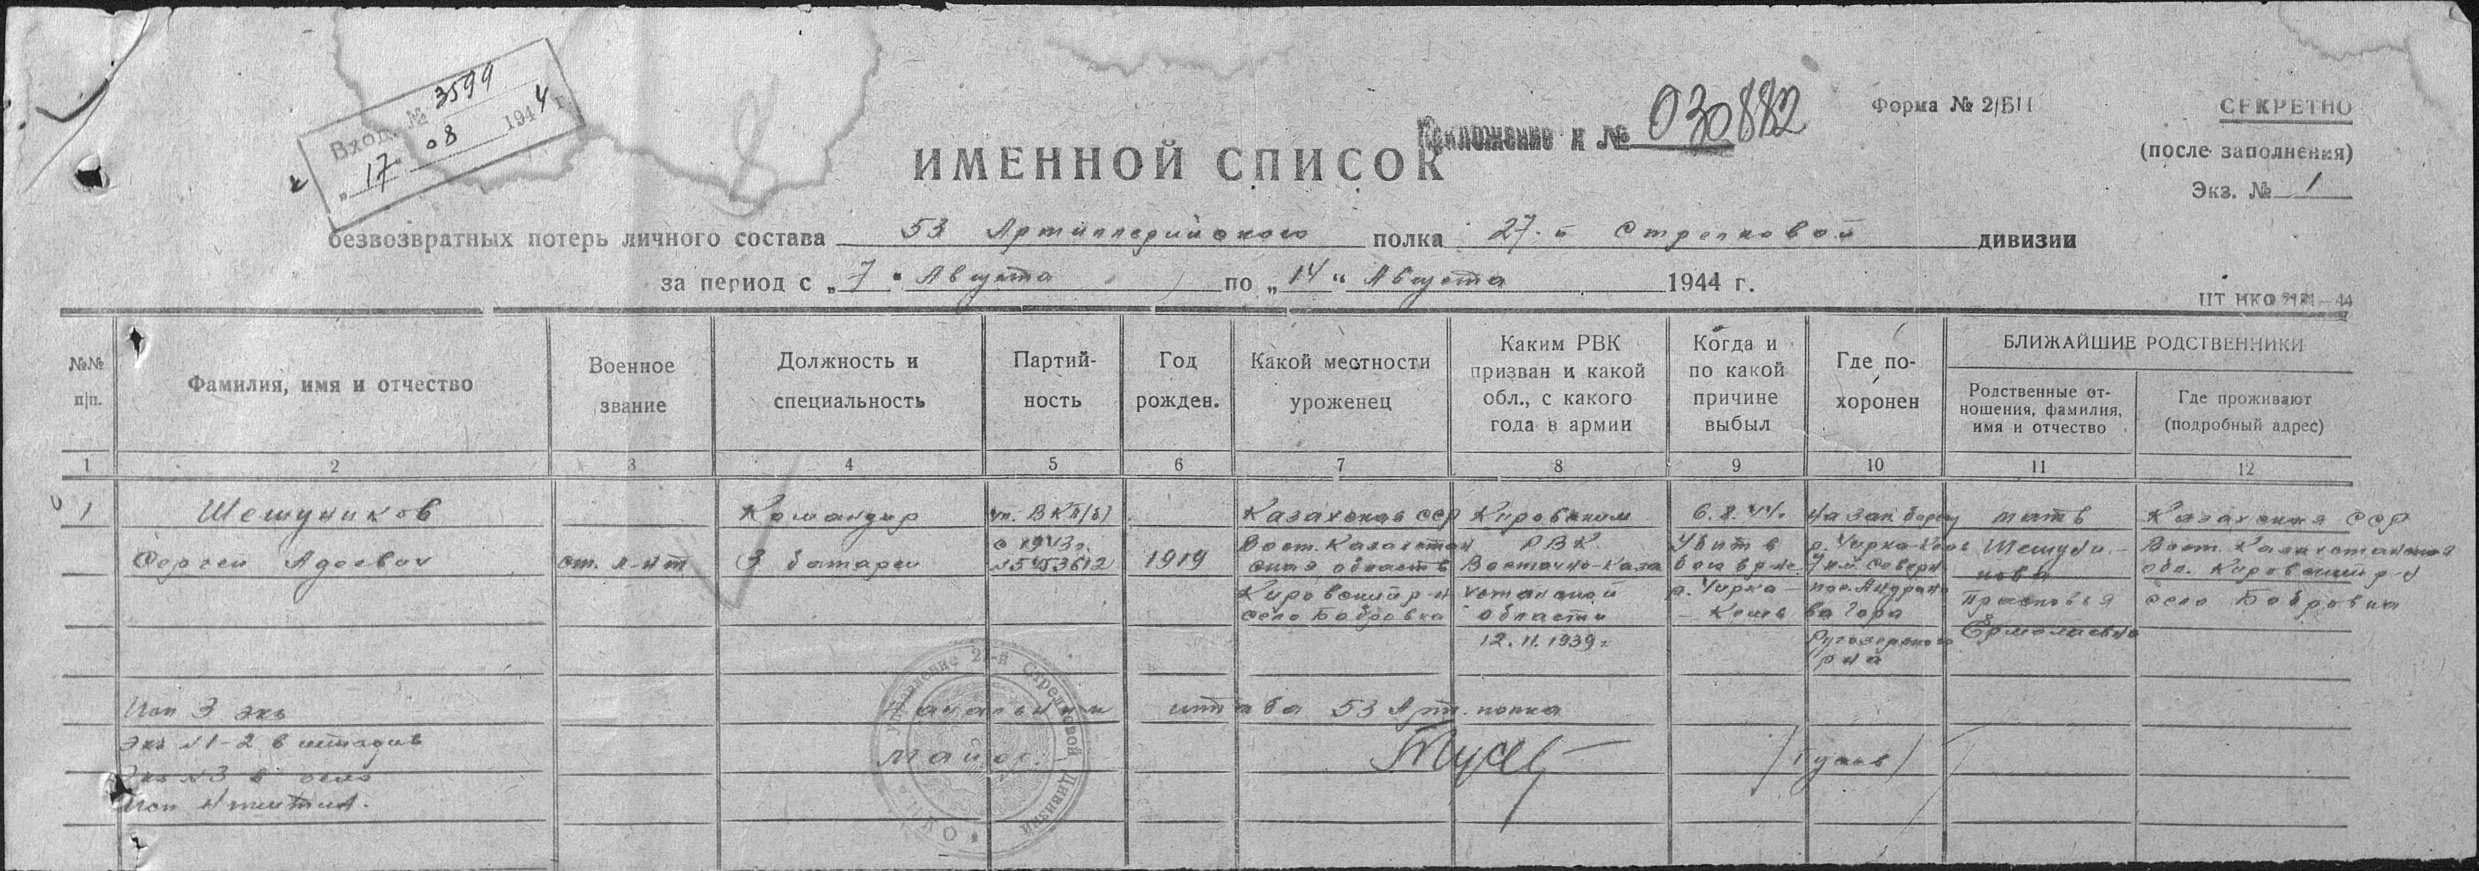 Вход. № 3599
„ 17 " 08 1944 г.
Приложение к № 030882
Форма № 2/БП
СЕКРЕТНО
(после заполнения)
Экз. № 1
ИМЕННОЙ СПИСОК
безвозвратных потерь личного состава 53 Артиллерийского полка 27-й Стрелковой дивизии
за период с „ 7 " Августа по „ 14 " Августа 1944 г.
№№ п/п.
Фамилия, имя и отчество
Военное звание
Должность и специальность
Партий-
ность
Год рожден.
Какой местности уроженец
Каким РВК
призван и какой
обл., с какого
года в армии
Когда и
по какой
причине
выбыл
Где по-
хоронен
БЛИЖАЙШИЕ РОДСТВЕННИКИ
Родственные от-
ношения, фамилия,
имя и отчество
Где проживают
(подробный адрес)
1 2 3 4 5 6 7 8 9 10 11 12
1
Шешуников
Сергей
ст. л-нт
Командир
3 батареи
чл. ВКП(б)
с 1943 г.
1919
Казахская ССР
Вост. Казахстан
ская область
Кировский р-н
село Бобровка
Кировским
РВК
Восточно-Каза
хстанской
области
12.11.1939 г.
6.8.44 г.
Убит в
р. Чирка-
- Кемь
р. Чирка-Кемь
ва Гора
Ругозерского
р-на
мать
Шешуни-
кова
Прасковья
Ермолаевна
Казахская ССР
Вост. Казахстанская
обл. Кировский р-н
село Бобровка
Исп 3 экз
Экз №1-2 в штадив
Экз №3 в дело
Начальник штаба 53 Арт. полка
Майор
Управление 27-й Стрелковой Дивизии